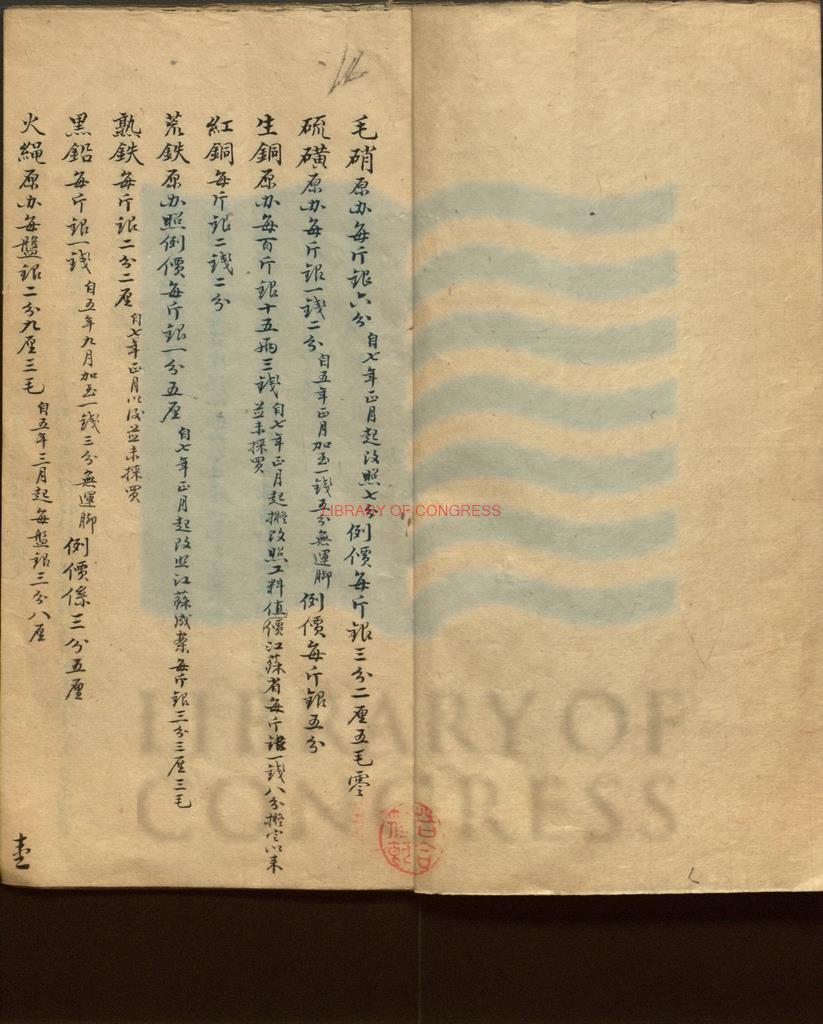 毛硝原办每斤银六分自七年正月起改照七分例價每斤银三分二厘五毛零
硫磺原办每斤银一錢二分自五年正月加至一錢五分無運脚例價每斤银五分
生銅原办每百斤银十五兩三錢自七年正月起擬改照工料值價江蘇省每斤银一錢八分擬定以来並未採買
紅銅每斤银二錢二分
荒鉄原办照例價每斤银一分五厘自七年正月起改照江蘇成案每斤银三分三厘三毛
熟鉄每斤银二分二厘自七年正月以後並未採買
黑鉛每斤银一錢自五年九月加至一錢三分無運脚例價係三分五厘
火繩原办每盤银二分九厘三毛自五年三月起每盤银三分八厘
LIBRARY OF CONGRESS
LIBRARY OF
CONGRESS